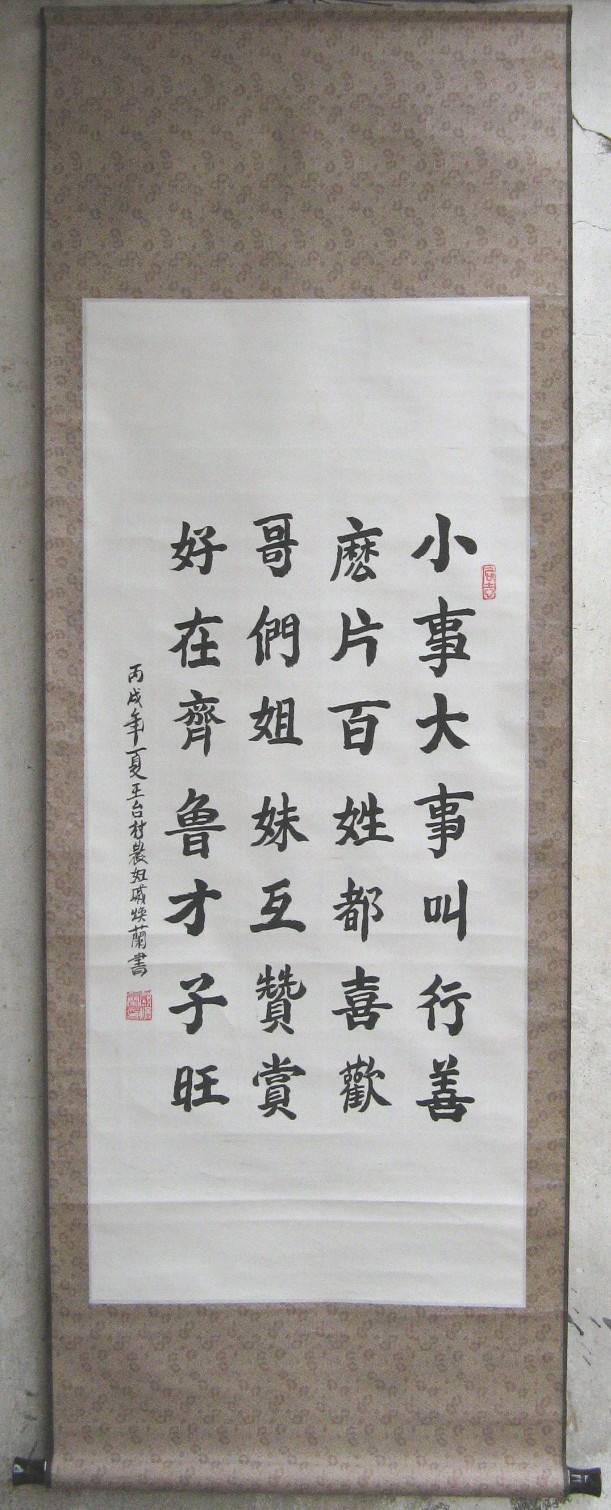 小事大事叫行善
麽片百姓都喜歡
哥們姐妹互贊賞
好在齊魯才子旺
丙戌年夏王台村農奴戚煥蘭書